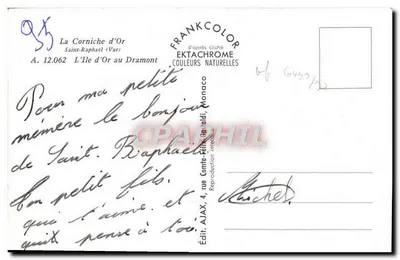 95
La Corniche d'Or
Saint-Raphaël (Var)
A. 12.062 L'Ile d'Or au Dramont
Pour ma petite
mémère le bonjour
de Saint. Raphaël
Ton petit fils.
qui t'aime et
qui pense à toi.
FRANKCOLOR
d'après cliché
EKTACHROME
COULEURS NATURELLES
Édit. AJAX, 4, rue Comte-Félix-Gastaldi, Monaco
Reproduction interdite
CPAPHIL
Michel.